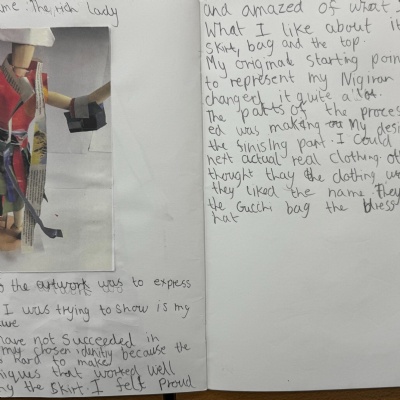 me: The rich lady
the artwork was to express
I was trying to show is my
have not succeeded in
my chosen idnity because the
hard to make
iques that worked well
ng the skirt. I felt proud
and amazed of what I
What I like about it
skirt, bag and the top.
My originale starting poin
to represent my Nigiran
changed it quite a lot.
The patts of the proces
ed was making my desi
the finising part. I could
next actual real clothing ot
thought thay the clothing w
they liked the name. They
the Gucchi bag the dress
hat